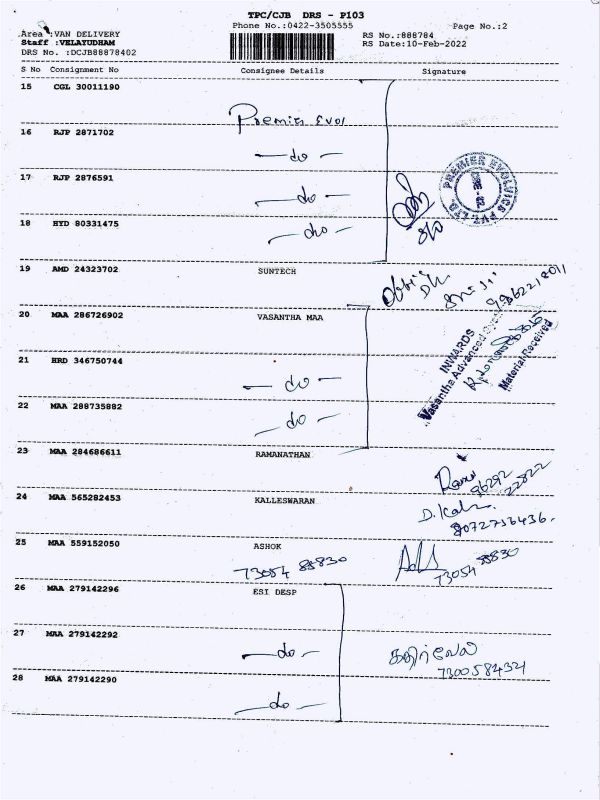 TPC/CJB DRS - P103
Phone No.:0422-3505555 Page No.:2
Area :VAN DELIVERY RS No.:888784
Staff :VELAYUDHAM RS Date:10-Feb-2022
DRS No. :DCJB88878402
S No Consignment No Consignee Details Signature
15 CGL 30011190
Premier Evol
16 RJP 2871702
— do —
17 RJP 2876591
— do —
18 HYD 80331475
— do —
PREMIER EVOLVICS PVT LTD.
19 AMD 24323702 SUNTECH
20 MAA 286726902 VASANTHA MAA
INWARDS
Vasantha Advanced
Material Received
21 HRD 346750744
— do —
22 MAA 288735882
— do —
23 MAA 284686611 RAMANATHAN
96292
22822
24 MAA 565282453 KALLESWARAN
D. Kal
8072756436.
25 MAA 559152050 ASHOK
73054 88830
73054 88830
26 MAA 279142296 ESI DESP
27 MAA 279142292
— do —
கதிர்வேல்
7300584321
28 MAA 279142290
— do —